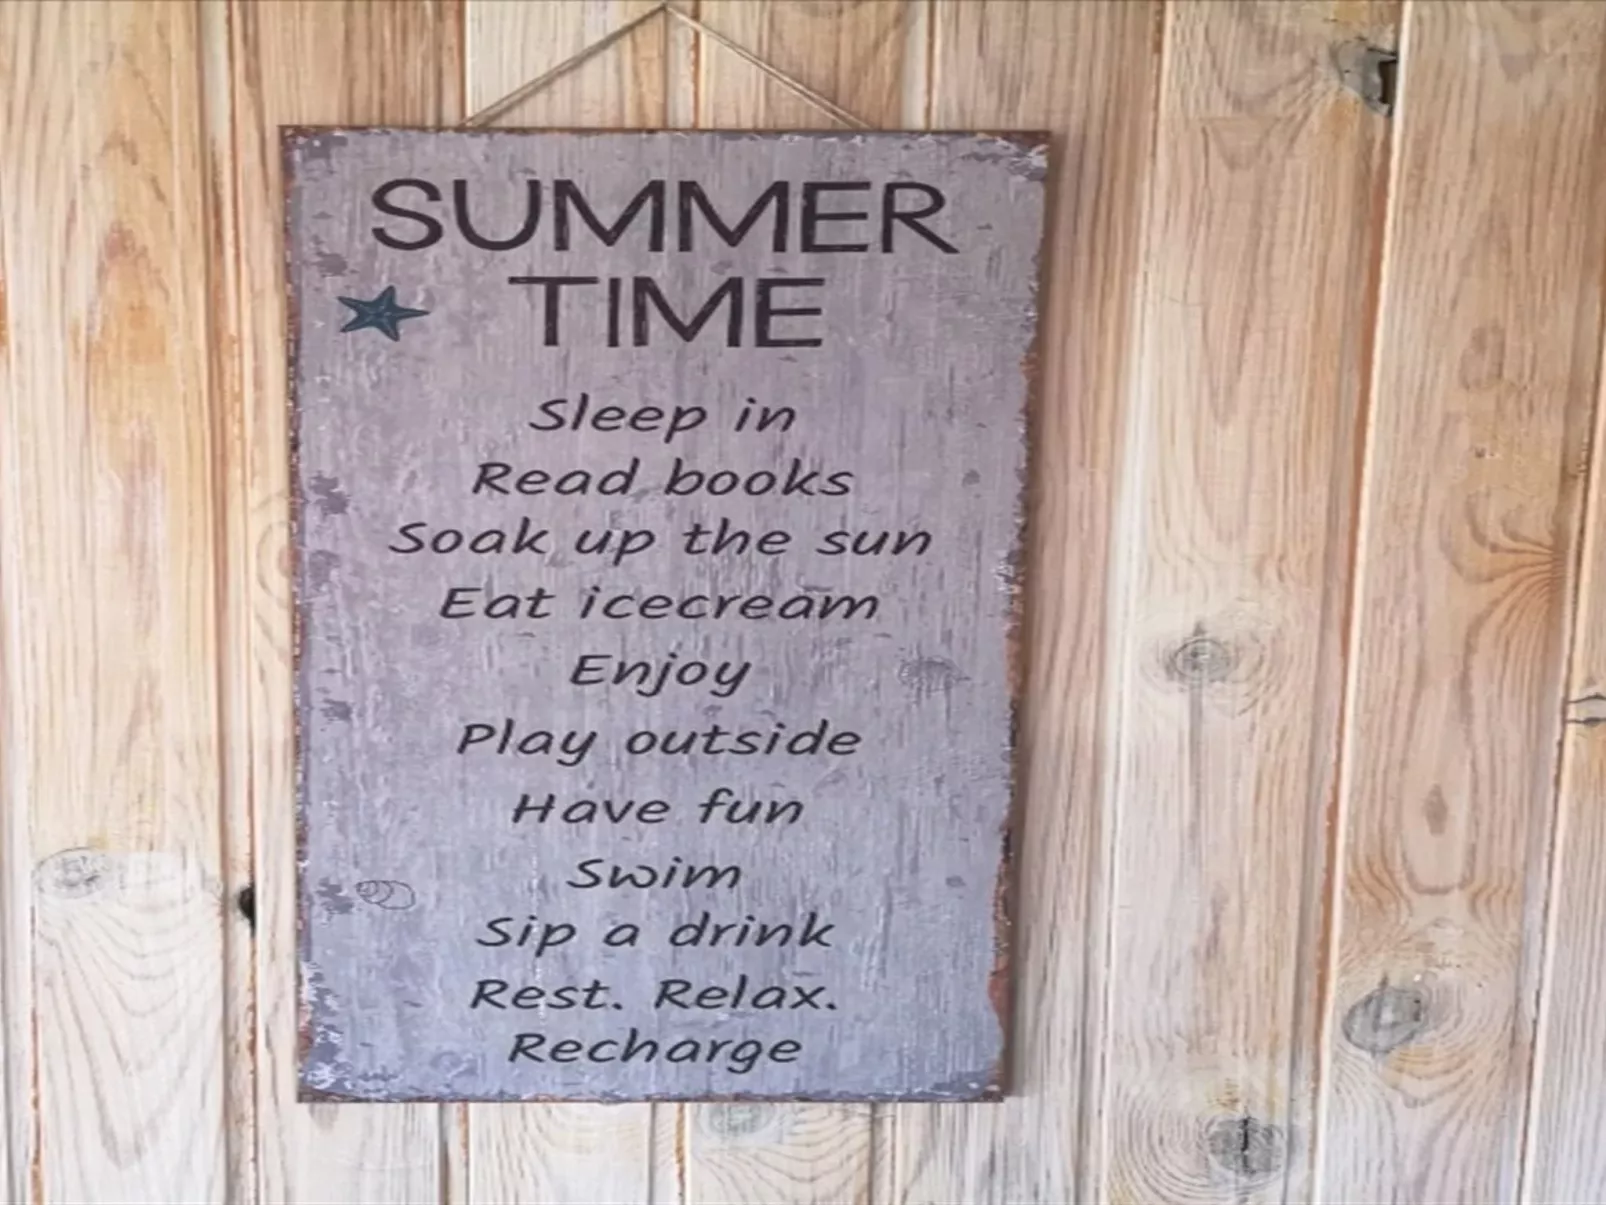 SUMMER
TIME
Sleep in
Read books
Soak up the sun
Eat icecream
Enjoy
Play outside
Have fun
Swim
Sip a drink
Rest. Relax.
Recharge